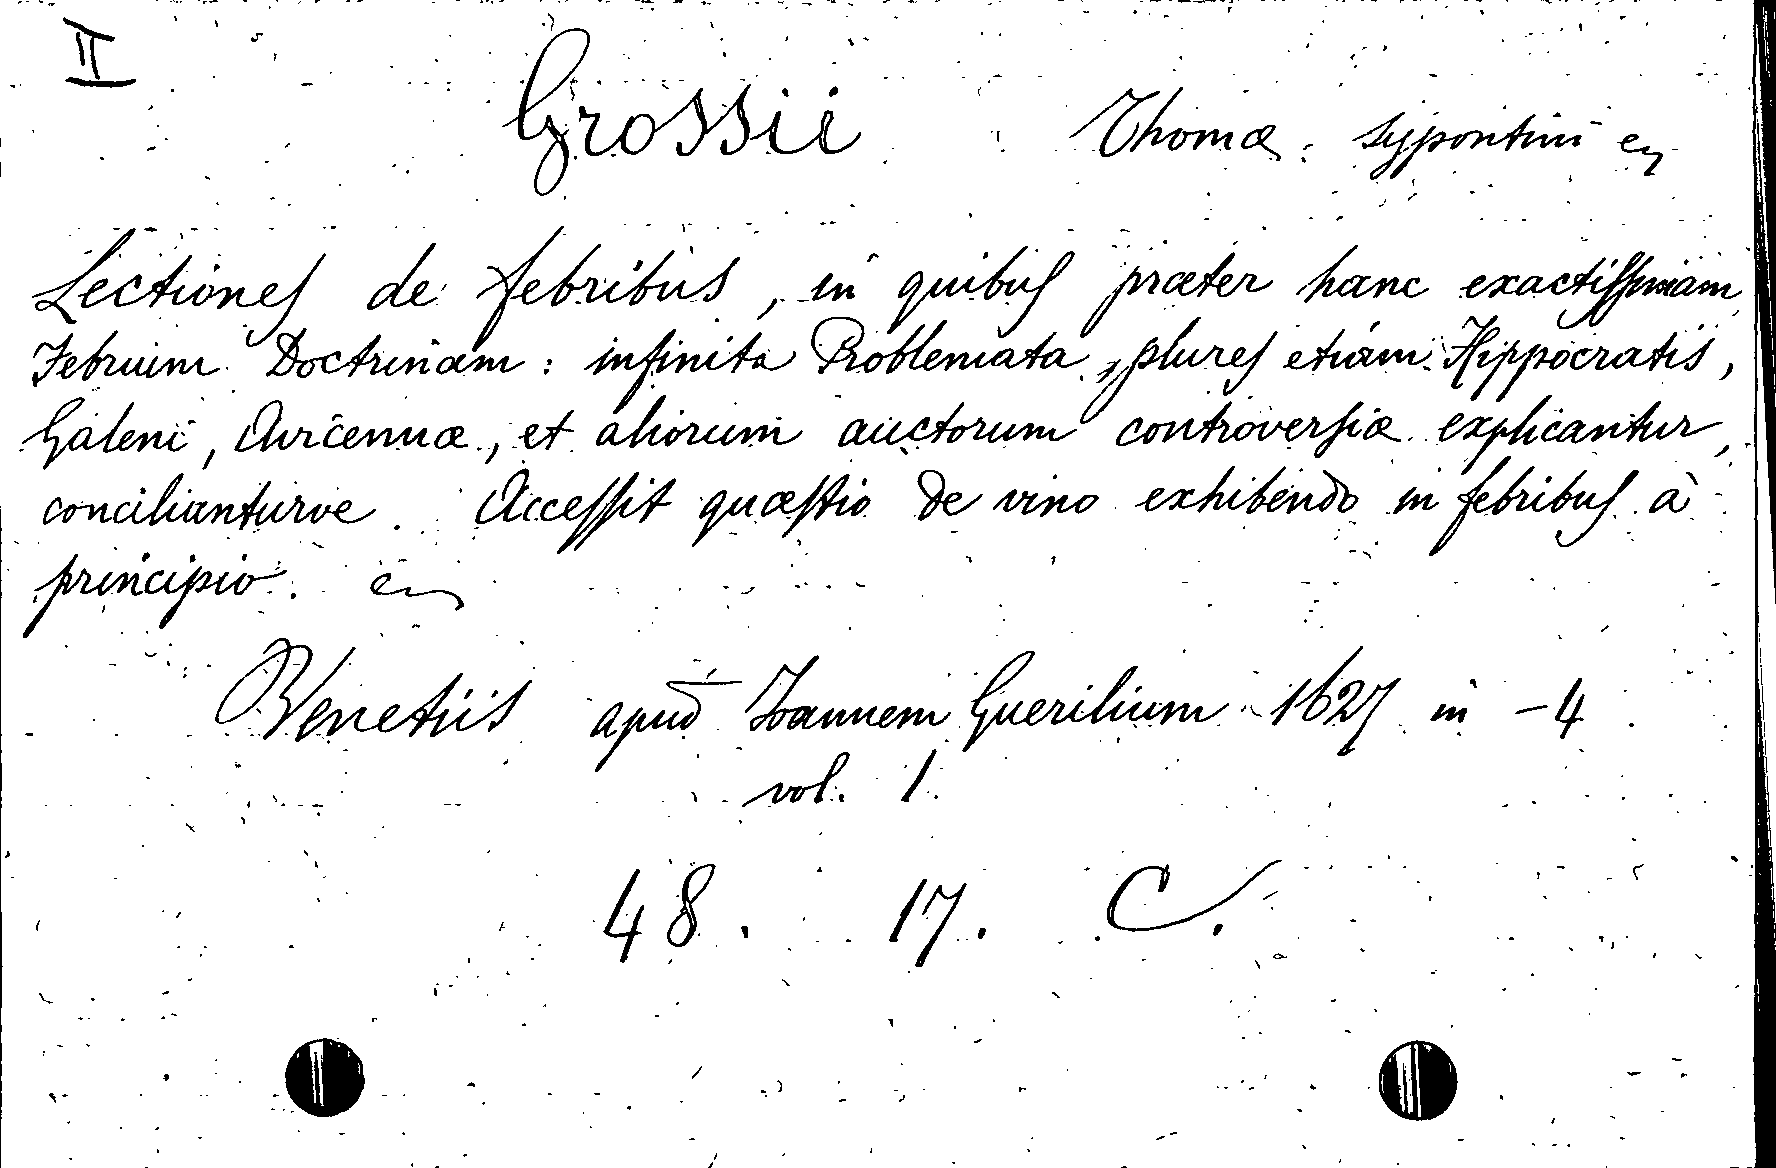 II
Grossii Thomæ: sypontini &
Lectiones de febribus, in quibus præter hanc exactissimam
Febrium Doctrinam: infinita Problemata, plures etiam Hippocratis,
Galeni, Avicennæ, et aliorum auctorum controversiæ explicantur,
concilianturve. Accessit quæstio de vino exhibendo in febribus à
principio. &
Venetiis apud Ioannem Guerilium 1627 in -4
vol. 1.
48. 17. C.